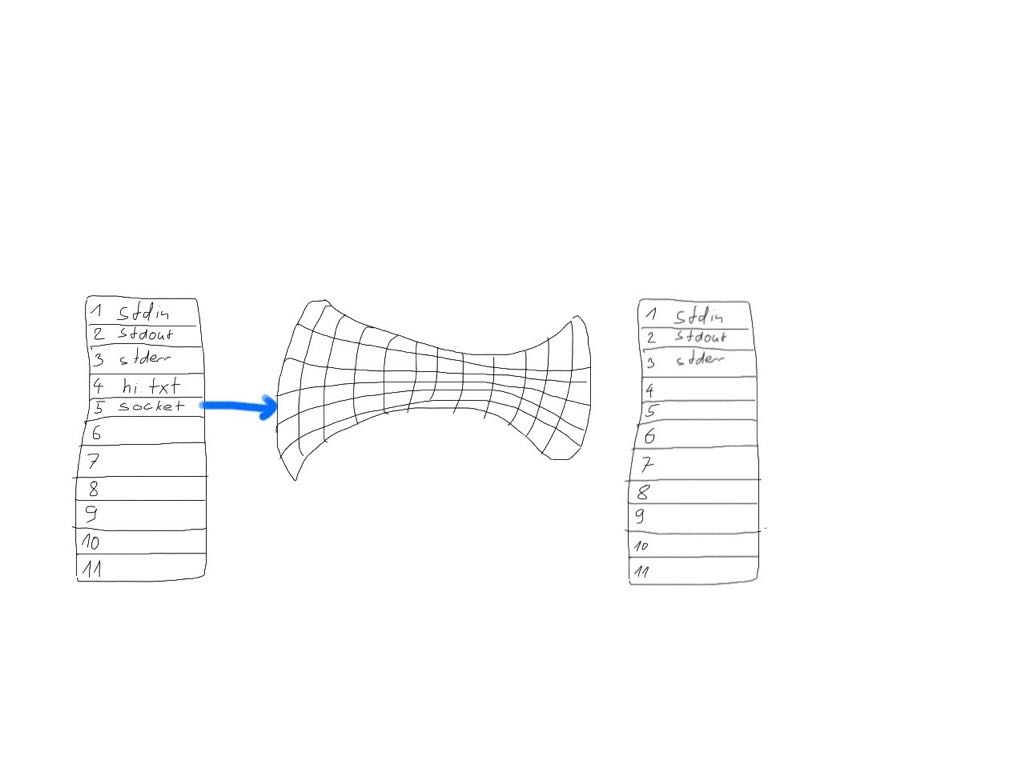 1 stdin
2 stdout
3 stderr
4 hi.txt
5 socket
6
7
8
9
10
11
1 stdin
2 stdout
3 stderr
4
5
6
7
8
9
10
11